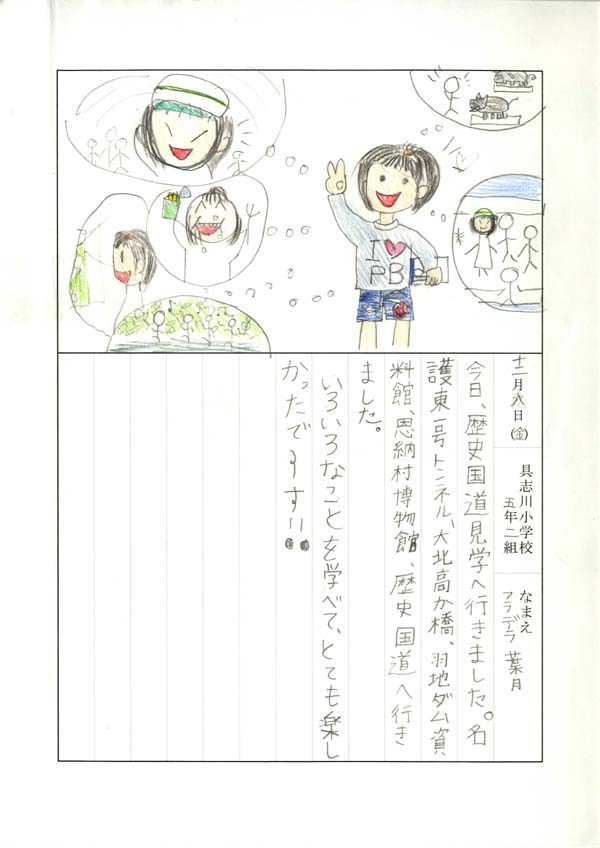 I ♥
PB
十二月日(金)
具志川小学校
五年二組
なまえ
フラデラ 葉月
今日、歴史国道見学へ行きました。名
護東一号トンネル、大北高か橋、羽地ダム資
料館、恩納村博物館、歴史国道へ行き
ました。
いろいろなことを学べて、とても楽し
かったで〜す!!